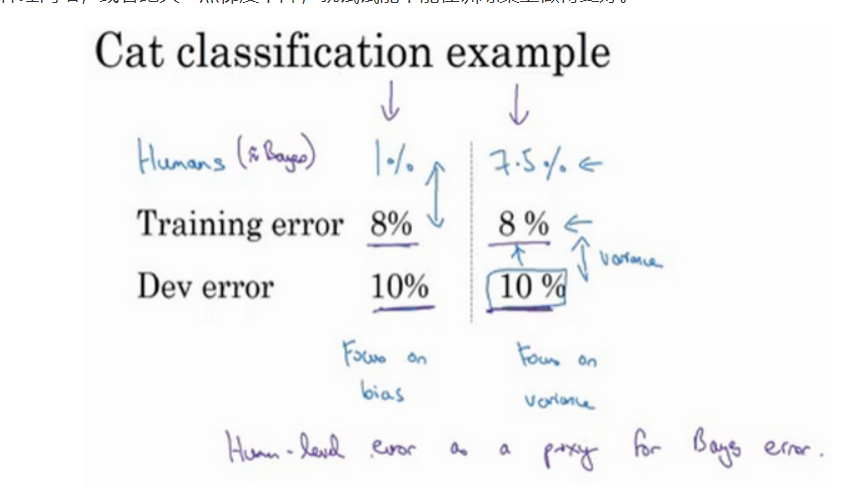 Cat classification example
Humans (≈ Bayes) 1% 7.5%
Training error 8% 8 %
Dev error 10% 10 %
variance
Focus on bias
Focus on variance
Human-level error as a proxy for Bayes error.